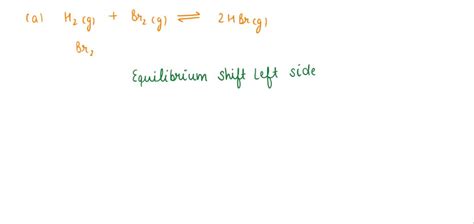 (a) H₂(g) + Br₂(g) ⇌ 2HBr(g)
Br₂
Equilibrium shift left side